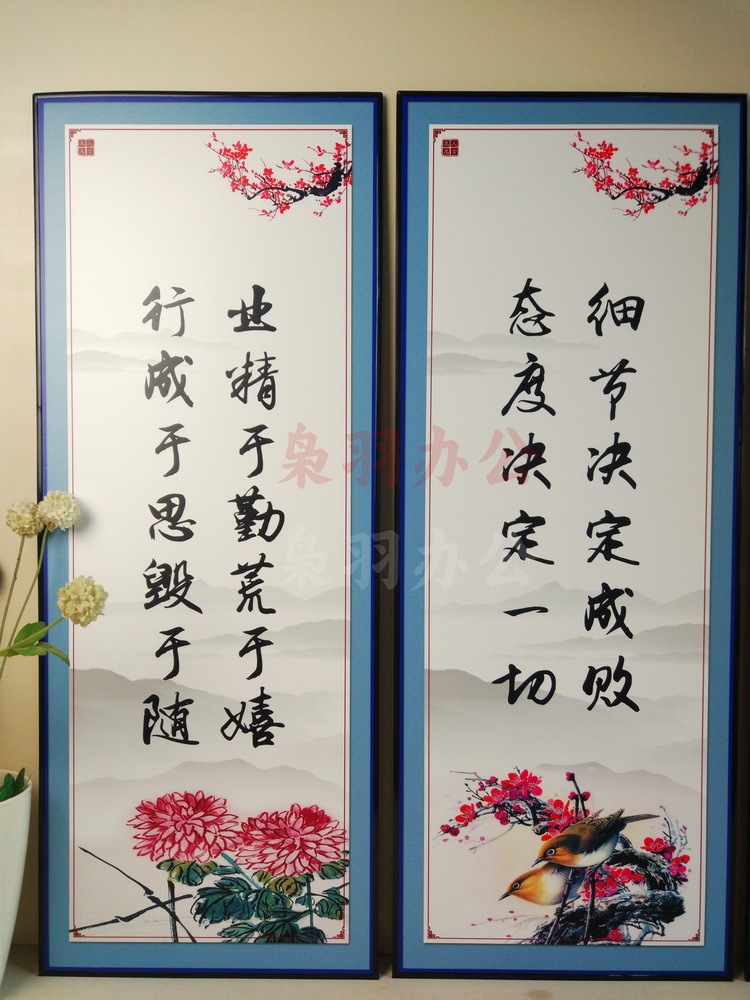 细节决定成败
态度决定一切
业精于勤荒于嬉
行成于思毁于随
枭羽办公
枭羽办公